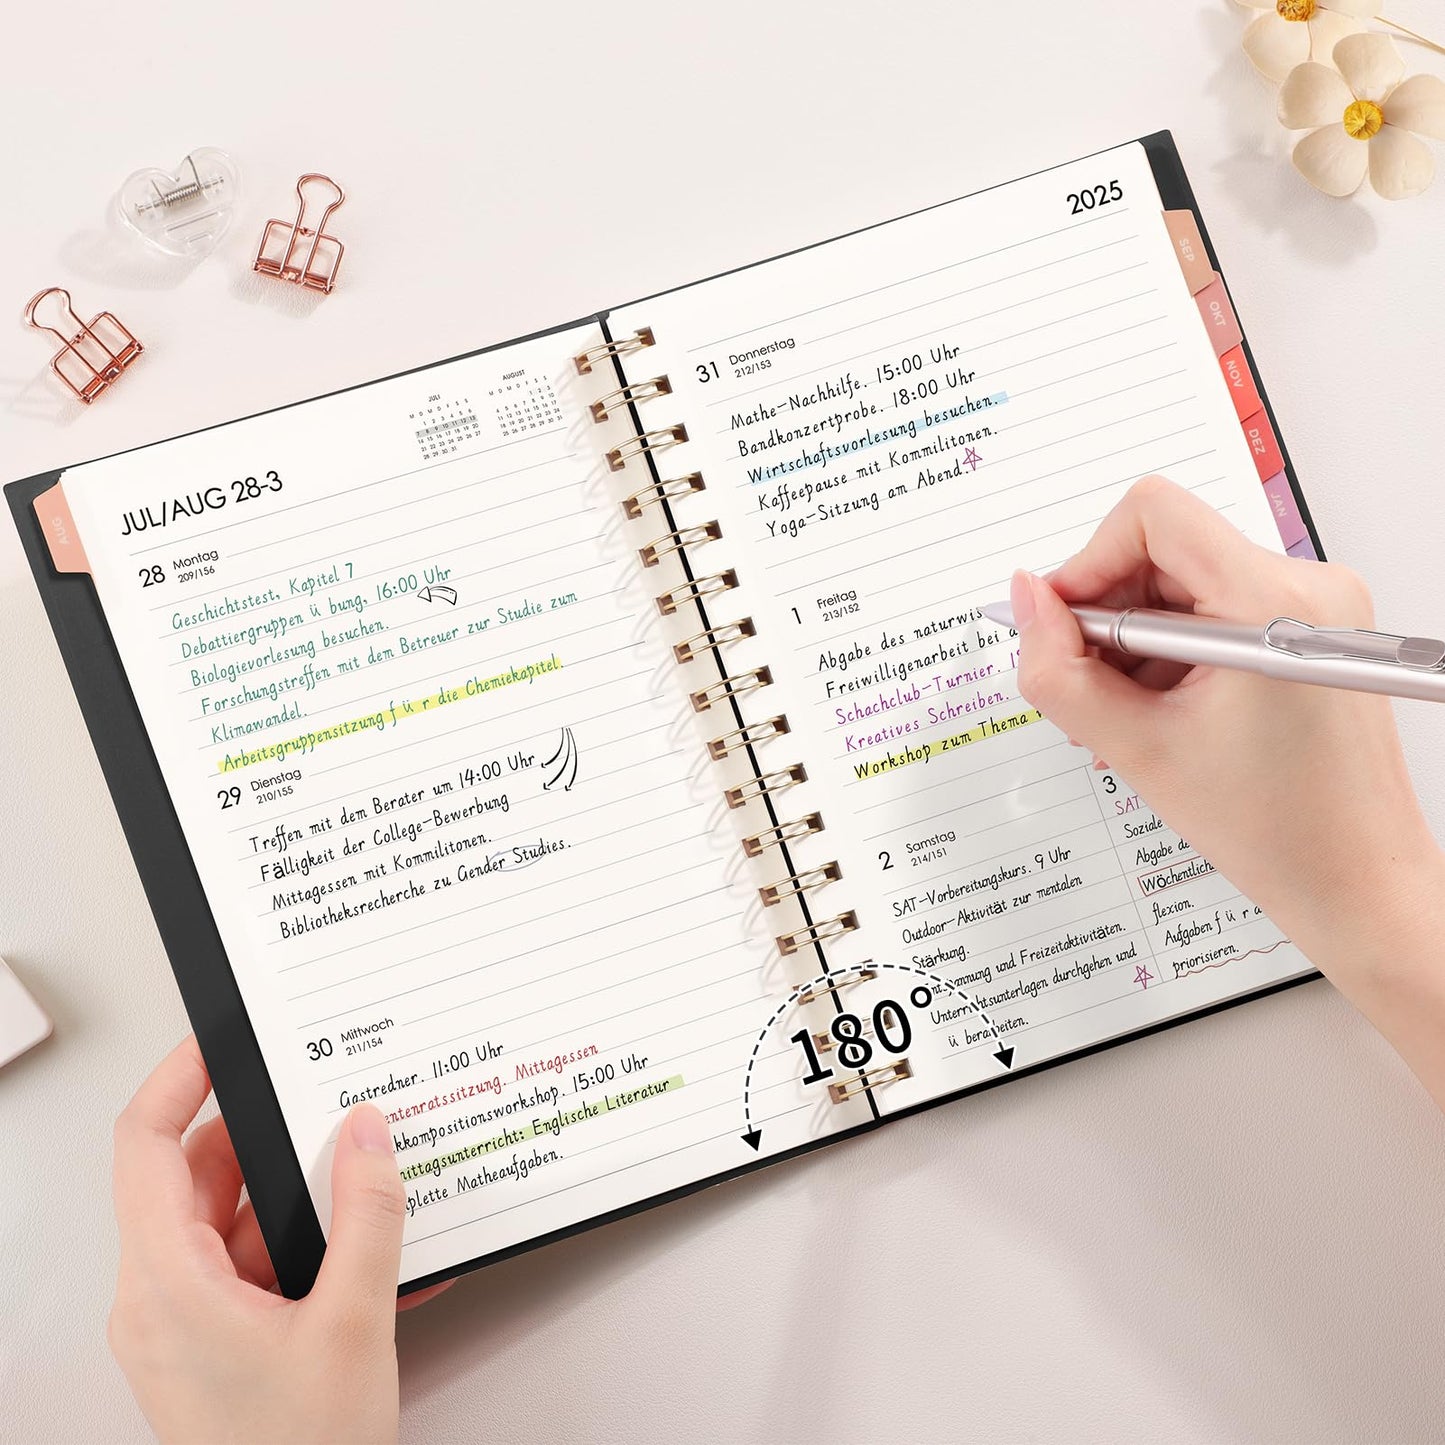 JUL/AUG 28-3
JULI
AUGUST
28 Montag
209/156
Geschichtstest, Kapitel 7
Debattiergruppen ü bung, 16:00 Uhr
Biologievorlesung besuchen.
Forschungstreffen mit dem Betreuer zur Studie zum
Klimawandel.
Arbeitsgruppensitzung f ü r die Chemiekapitel.
29 Dienstag
210/155
Treffen mit dem Berater um 14:00 Uhr
Fälligkeit der College-Bewerbung
Mittagessen mit Kommilitonen.
Bibliotheksrecherche zu Gender Studies.
30 Mittwoch
211/154
Gastredner. 11:00 Uhr
entenratssitzung. Mittagessen
kkompositionsworkshop. 15:00 Uhr
mittagsunterricht: Englische Literatur
plette Matheaufgaben.
2025
31 Donnerstag
212/153
Mathe-Nachhilfe. 15:00 Uhr
Bandkonzertprobe. 18:00 Uhr
Wirtschaftsvorlesung besuchen.
Kaffeepause mit Kommilitonen.
Yoga-Sitzung am Abend.
1 Freitag
213/152
Abgabe des naturwis
Freiwilligenarbeit bei
Schachclub-Turnier.
Kreatives Schreiben.
Workshop zum Thema
2 Samstag
214/151
SAT-Vorbereitungskurs. 9 Uhr
Outdoor-Aktivität zur mentalen
Stärkung.
ntspannung und Freizeitaktivitäten.
Unterrichtsunterlagen durchgehen und
ü berarbeiten.
3
SAT
Soziale
Abgabe de
Wöchentlich
flexion.
Aufgaben f ü r a
priorisieren.
AUG
SEP
OKT
NOV
DEZ
JAN
180°